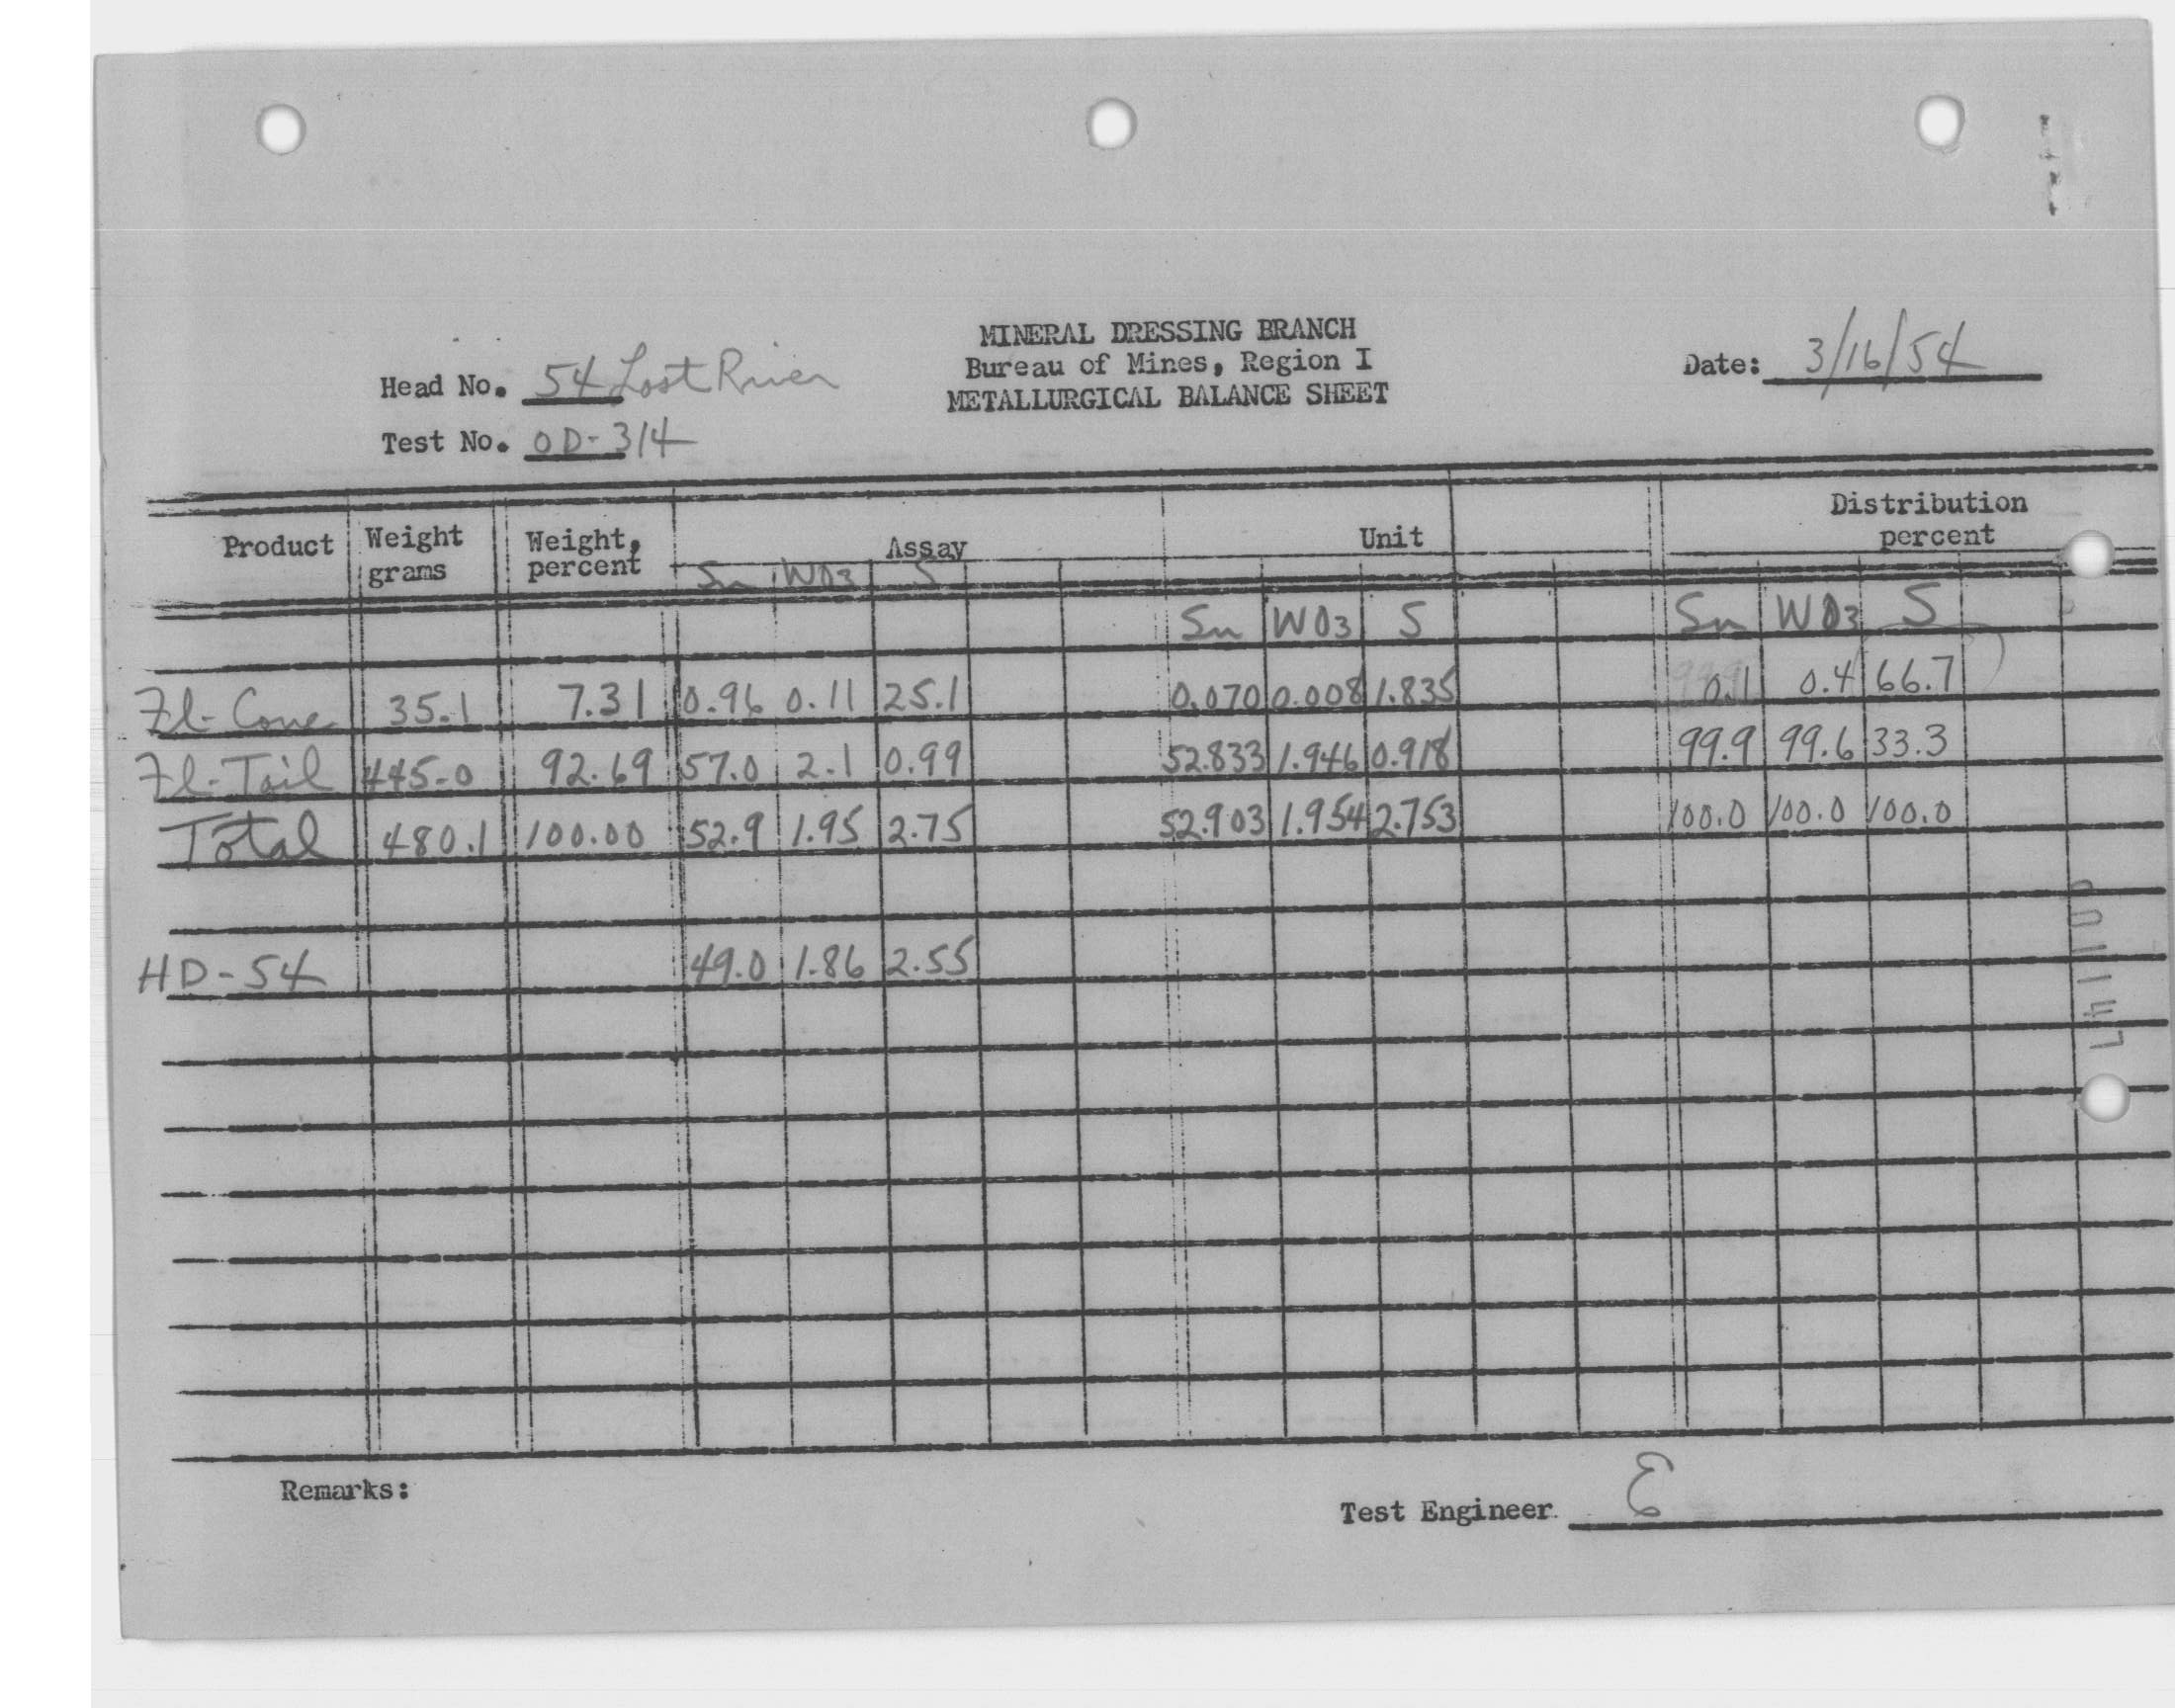 MINERAL DRESSING BRANCH
Bureau of Mines, Region I
METALLURGICAL BALANCE SHEET
Head No. 54 Lost River
Test No. OD-314
Date: 3/16/54
Product Weight grams Weight, percent Assay Unit Distribution percent
Sn WO3 S
Sn WO3 S Sn WO3 S
Fl-Conc 35.1 7.31 0.96 0.11 25.1 0.070 0.008 1.835 0.1 0.4 66.7
Fl-Tail 445.0 92.69 57.0 2.1 0.99 52.833 1.946 0.918 99.9 99.6 33.3
Total 480.1 100.00 52.9 1.95 2.75 52.903 1.954 2.753 100.0 100.0 100.0
HD-54 49.0 1.86 2.55
Remarks:
Test Engineer E